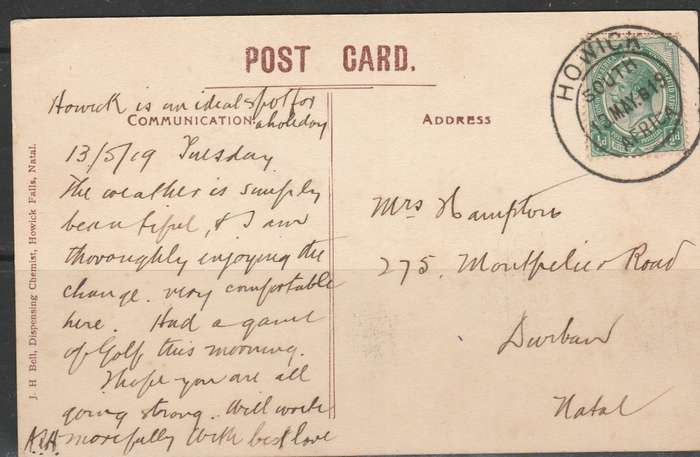 POST CARD.
Howick is an ideal spot for
a holiday
COMMUNICATION
13/5/19 Tuesday
The weather is simply
beautiful, & I am
thoroughly enjoying the
change. very comfortable
here. Had a game
of Golf this morning.
I hope you are all
going strong. Will write
more fully With best love
J. H Bell, Dispensing Chemist, Howick Falls, Natal.
ADDRESS
Mrs Hampton
275, Montpelier Road
Durban
Natal
HOWICK
SOUTH
MAY.919
AFRICA